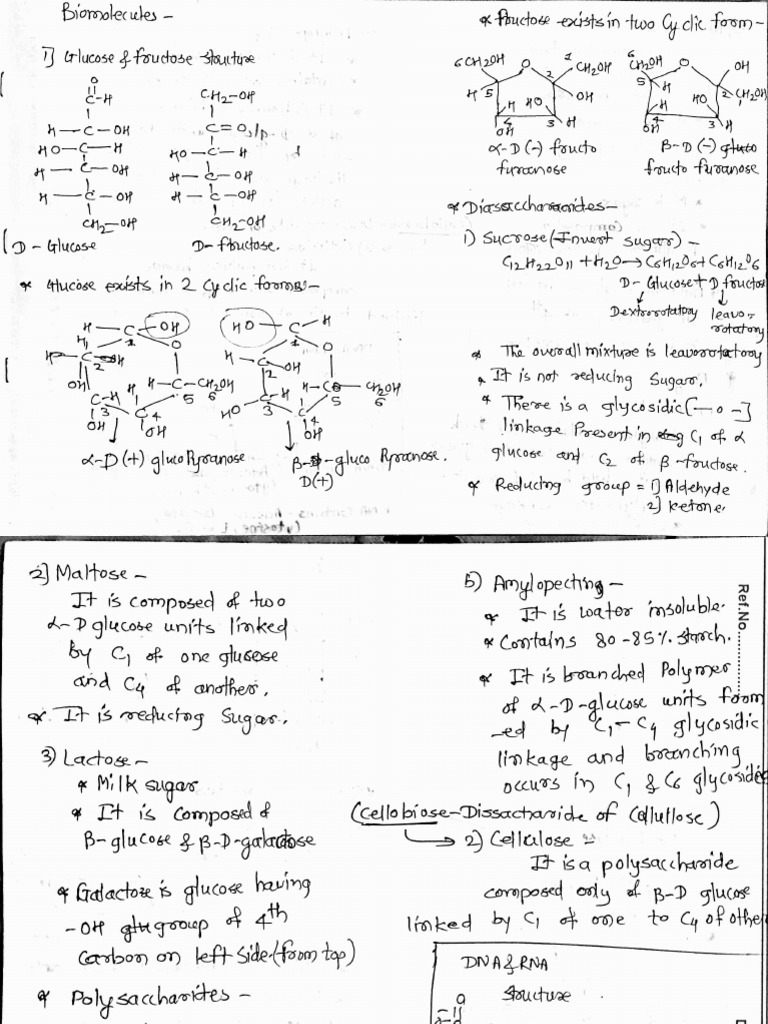 Biomolecules -
1) Glucose & fructose structure
O
C-H
H-C-OH
HO-C-H
H-C-OH
H-C-OH
CH2-OH
D-Glucose
CH2-OH
C=O
HO-C-H
H-C-OH
H-C-OH
CH2-OH
D-fructose.
* Glucose exists in 2 Cyclic forms-
H-C-OH
1
O
H
2
OH
H-C-CH2OH
5 6
H-C
3
C4
OH
OH
α-D(+) gluco Pyranose
HO-C-H
1
O
H-C
2
OH
H-C
5
CH2OH
6
C-H
HO
3
C
4
OH
β-gluco Pyranose.
D(+)
* fructose exists in two Cyclic form-
6CH2OH
O
1
CH2OH
2
H
5
H
HO
OH
4
OH
3
H
α-D(-) fructo
furanose
6
CH2OH
O
OH
5
H
2
CH2OH
1
H
HO
OH
4
3
H
β-D(-)
fructo furanose
* Diassaccharides-
1) Sucrose (Invert sugar) -
C12H22O11 + H2O → C6H12O6 + C6H12O6
D-Glucose + D fructose
Dextrorotatory leavo-
rotatory
* The overall mixture is leavorotatory
* It is not reducing Sugar.
* There is a glycosidic [-o-]
linkage Present in C1 of α
glucose and C2 of β-fructose.
* Reducing group = 1) Aldehyde
2) ketone.
2) Maltose -
It is composed of two
α-D glucose units linked
by C1 of one glucose
and C4 of another.
* It is reducing Sugar.
3) Lactose -
* Milk sugar
* It is composed of
β-glucose & β-D-galactose
* Galactose is glucose having
-OH group of 4th
carbon on left side. (from top)
* Polysaccharites -
5) Amylopecting -
* It is water insoluble.
* Contains 80-85% starch.
* It is branched Polymer
of α-D-glucose units form
-ed by C1-C4 glycosidic
linkage and branching
occurs in C1 & C6 glycosidic
Ref.No.......
(cellobiose-Dissacharide of Cellullose)
2) Cellulose =
It is a polysaccharide
composed only of β-D glucose
linked by C1 of one to C4 of other
DNA & RNA
Structure